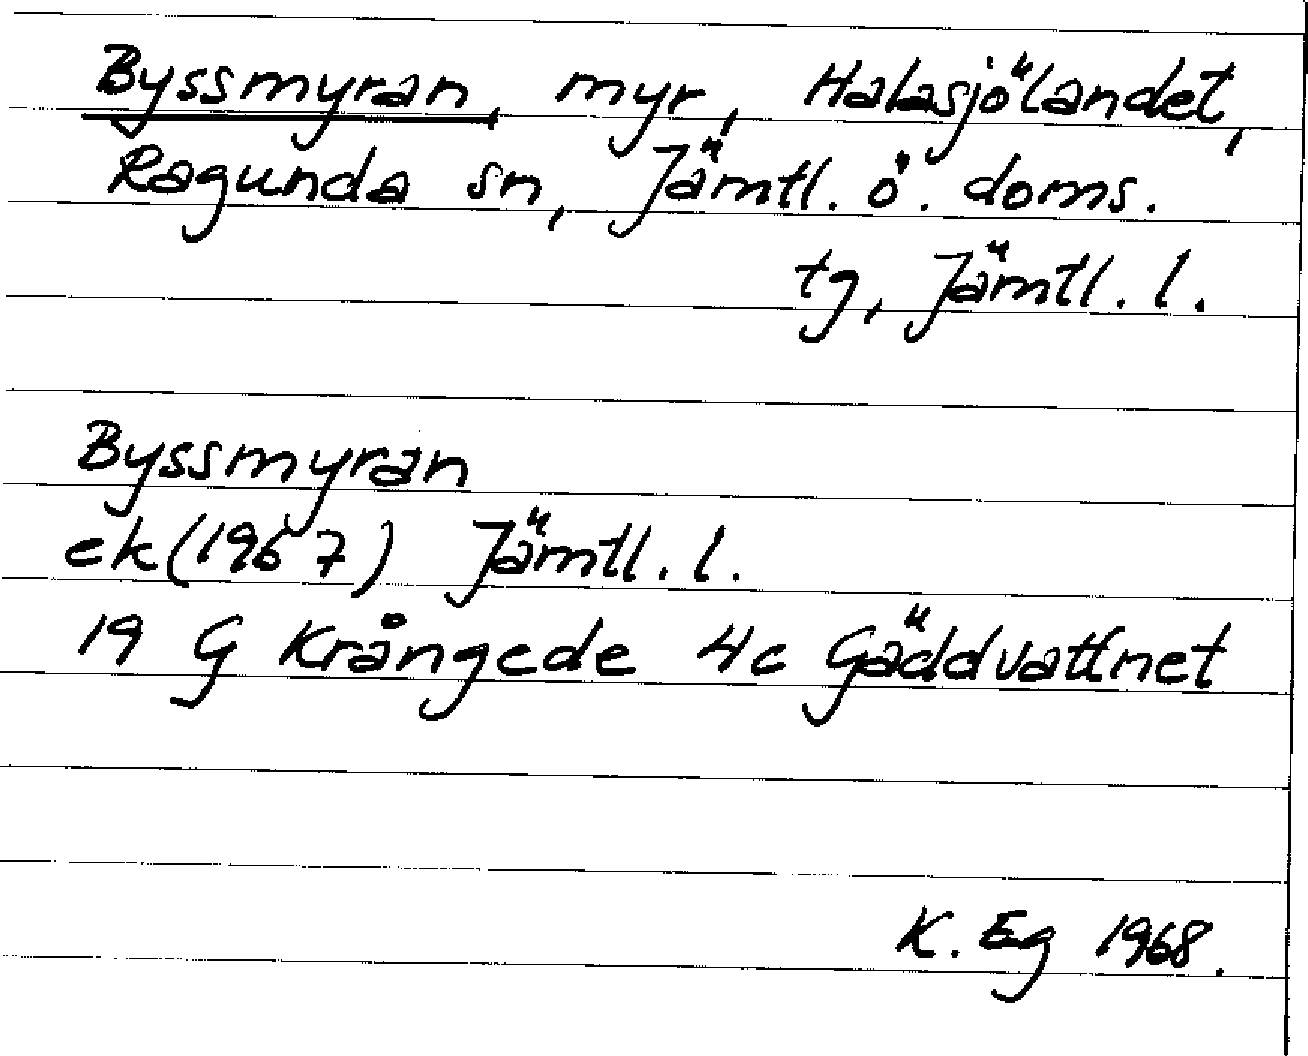 Byssmyran, myr, Halasjölandet,
Ragunda sn, Jämtl. ö. doms.
tg, Jämtl. l.
Byssmyran
ek (1967) Jämtl. l.
19 G Krångede 4c Gäddvattnet
K. Eg 1968.